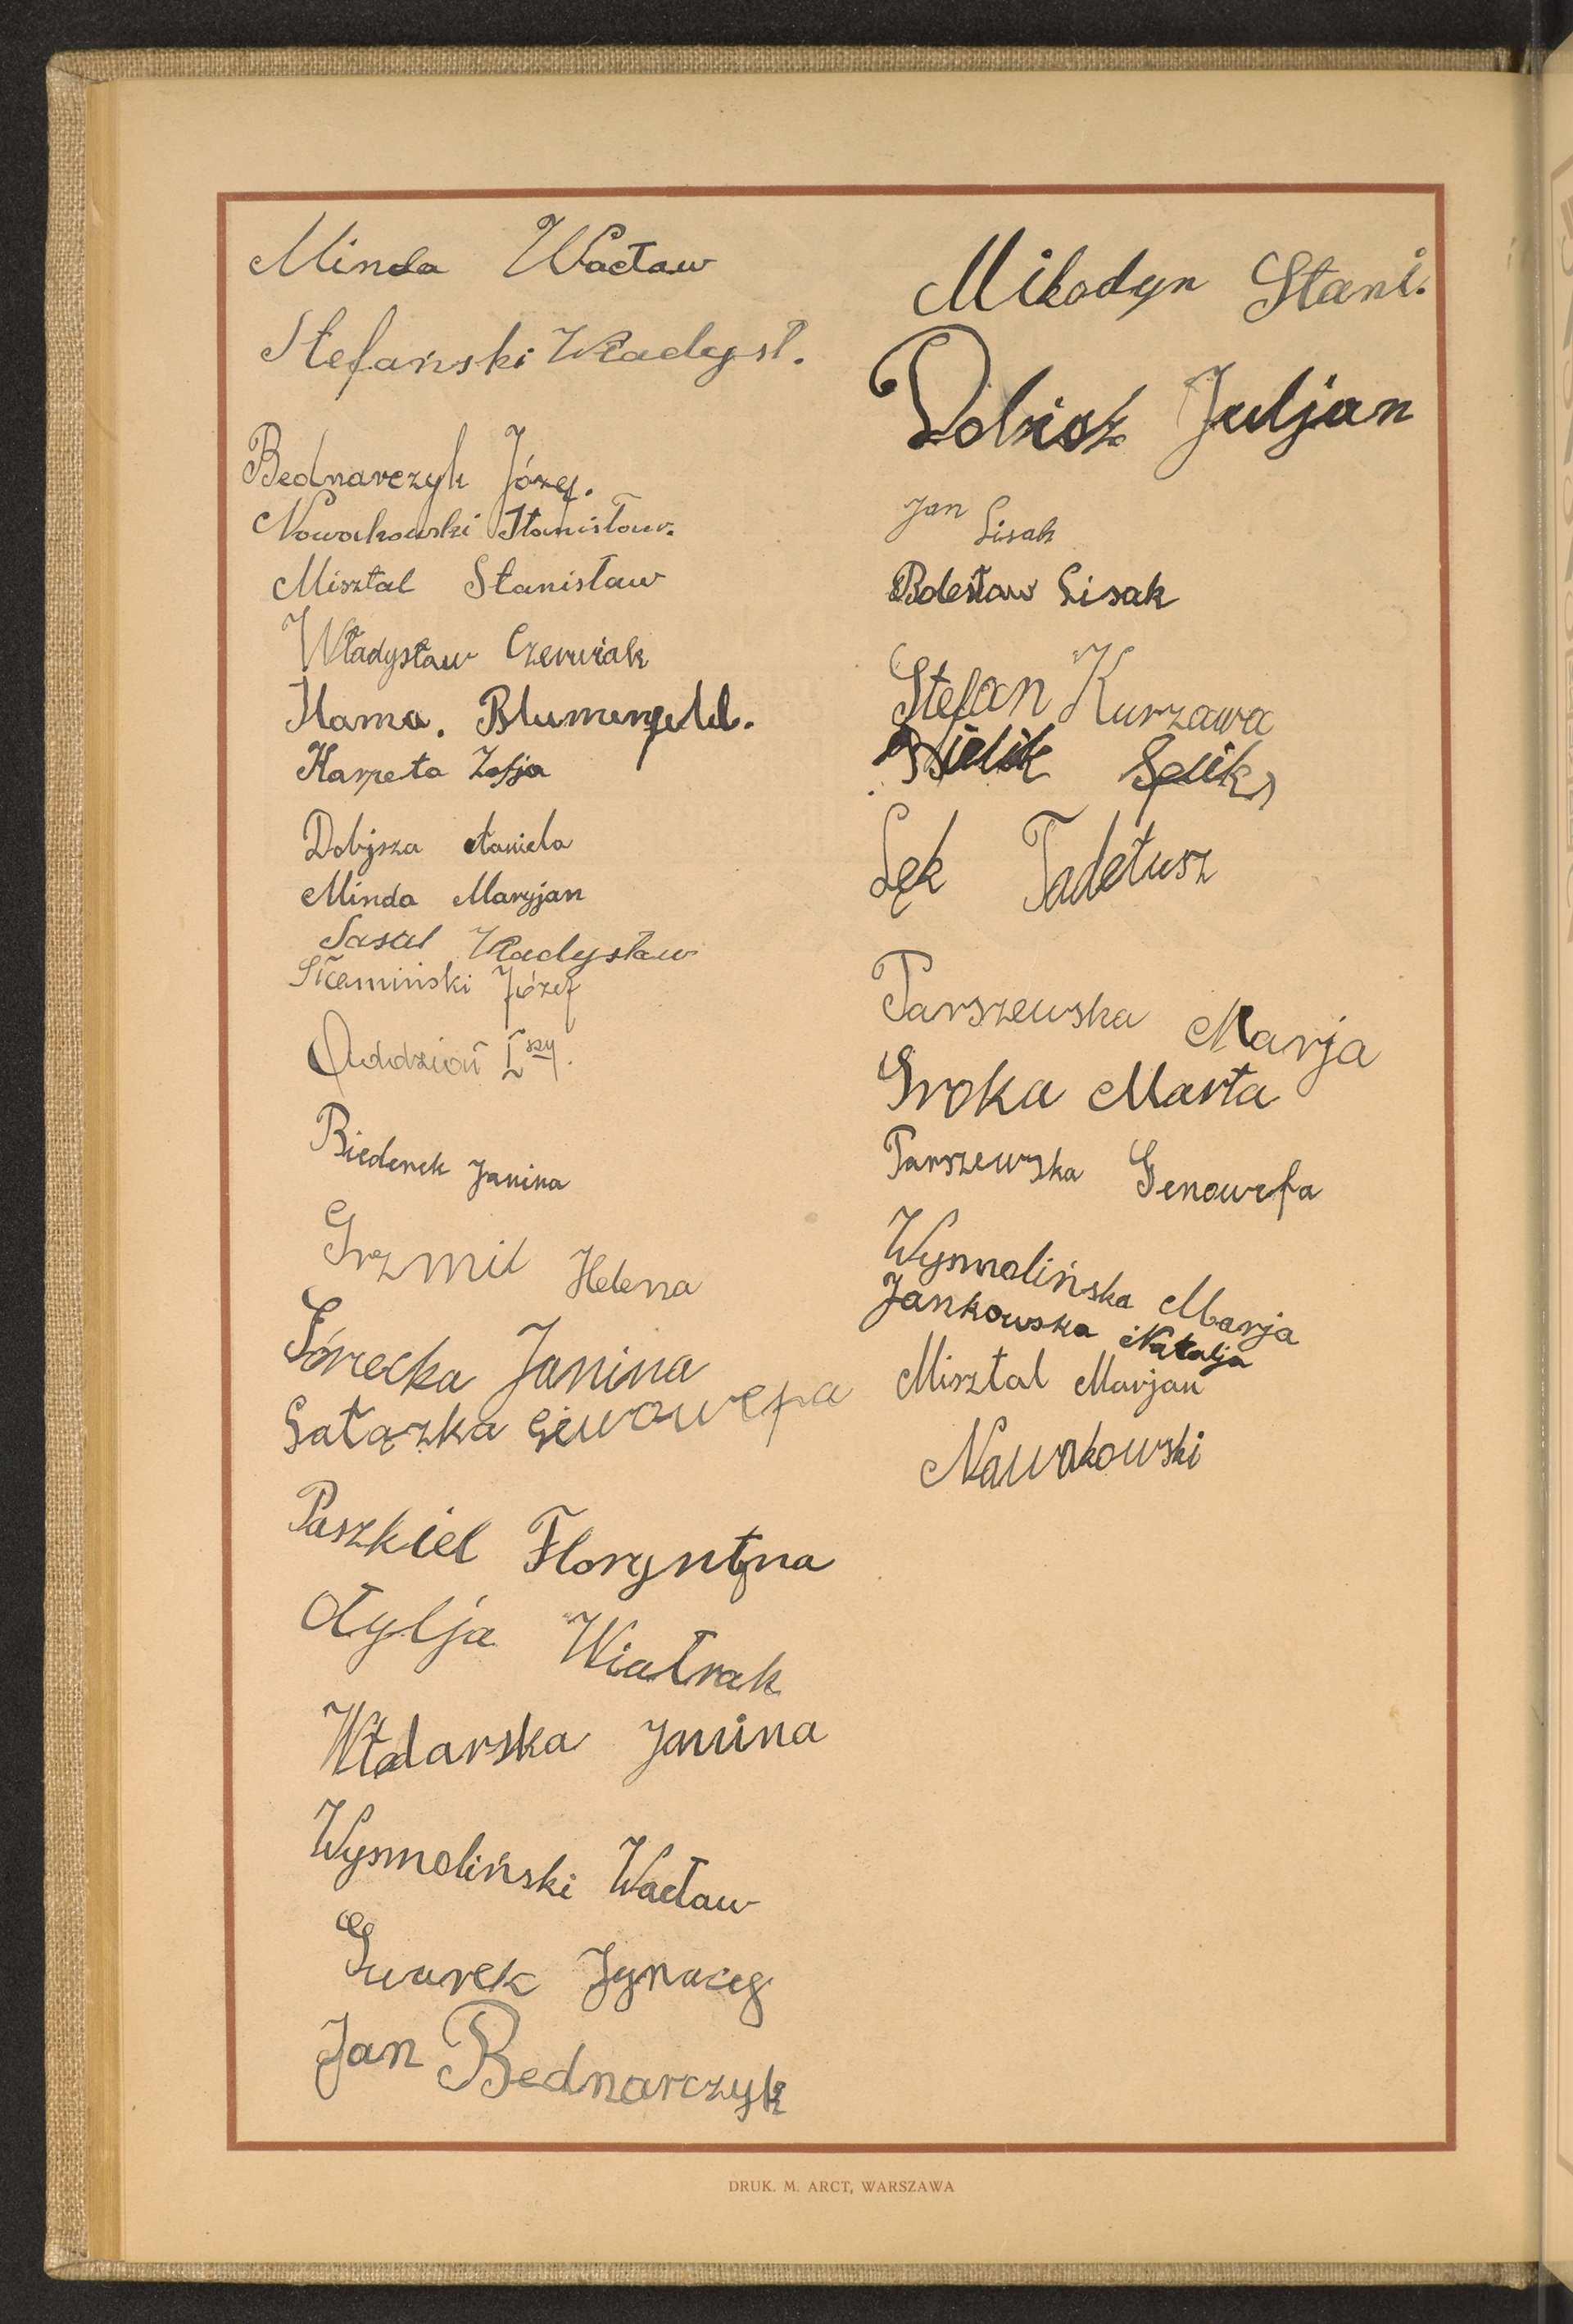 Minda Wacław
Stefański Władysł.
Bednarczyk Józef.
Nowakowski Stanisław.
Misztal Stanisław
Władysław Czerwiak
Hama. Blumengeld.
Karpeta Zofja
Dobjsza Aaniela
Minda Maryjan
Sasal Władysław
Słamiński Józef
Oddział I szy.
Biedenek Janina
Grzmil Helena
Górecka Janina
Gałązka Genowefa
Paszkiel Floryntyna
Otylja Wiatrak
Włodarska Janina
Wysmoliński Wacław
Gwarek Jgnacy
Jan Bednarczyk
Mikodyn Stani.
Dobisz Juljan
Jan Lisak
Bolesław Lisak
Stefan Kurzawa
Bielik
Lęk Tadełusz
Parszewska Marja
Sroka Marta
Parszewska Genowefa
Wysmolińska Marja
Jankowska Natalja
Misztal Marjan
Nawakowski
DRUK. M. ARCT, WARSZAWA